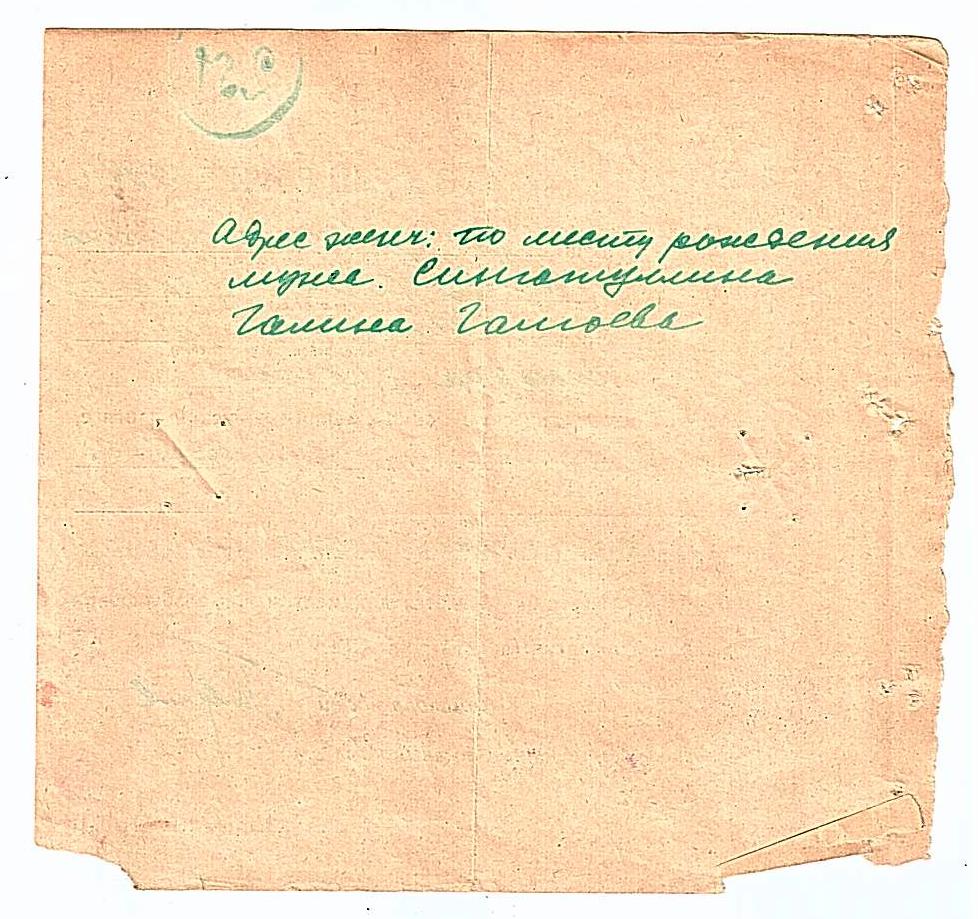 Адрес жены: по месту рождения
мужа. Сингатуллина
Галина Галиева